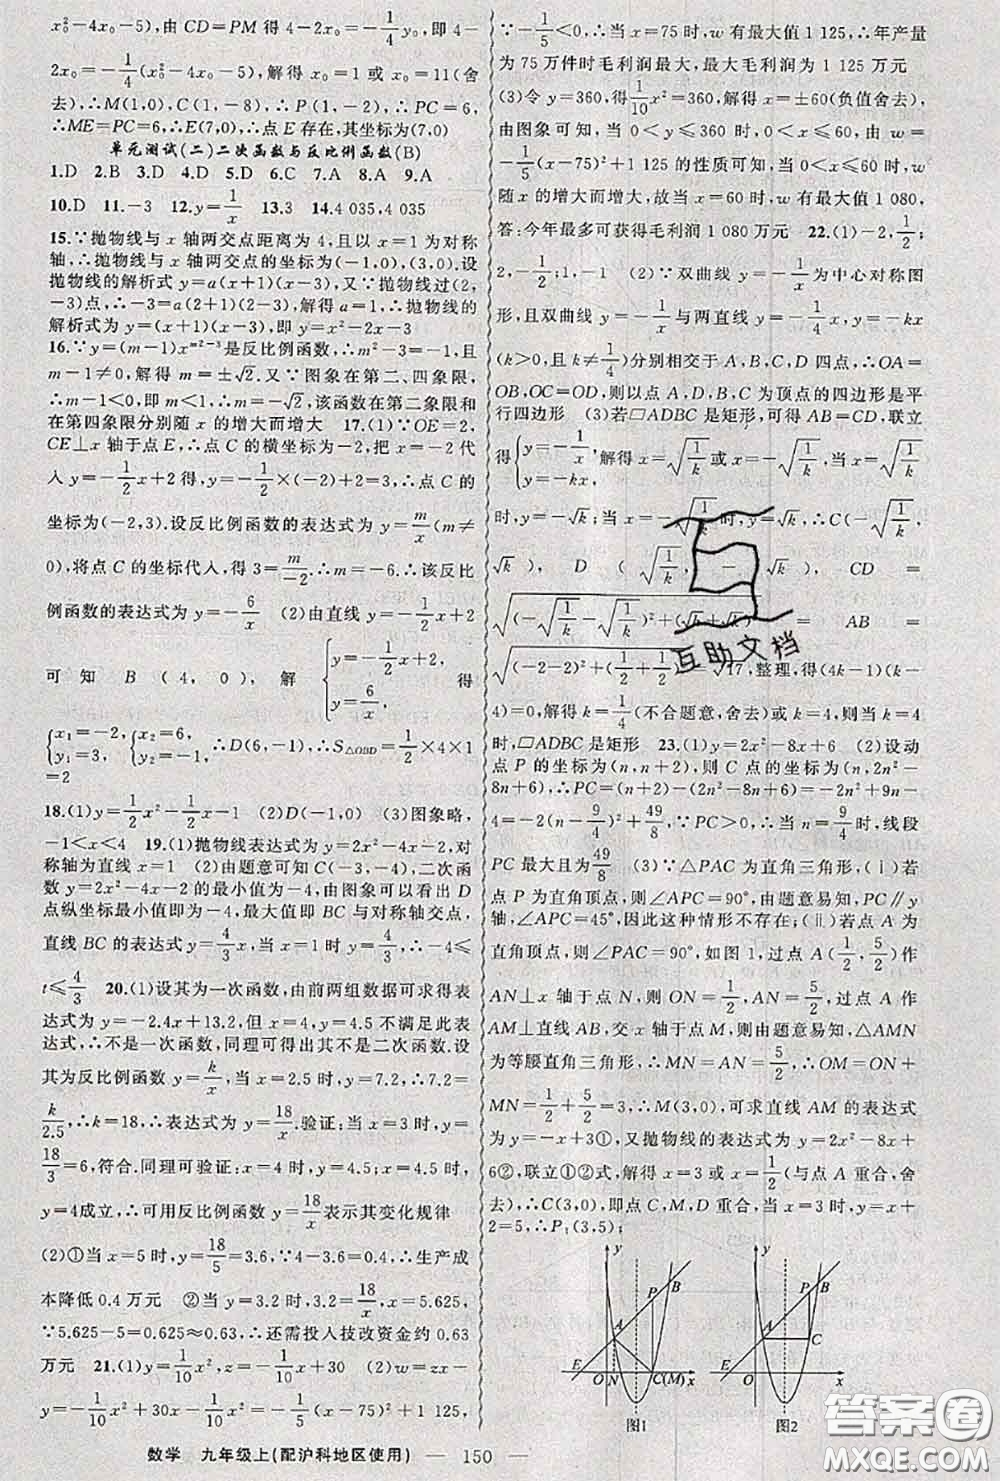 x₀²-4x₀-5),由CD=PM得4-2x₀=-1/4y₀,即4-
2x₀=-1/4(x₀²-4x₀-5),解得x₀=1或x₀=11(舍
去),∴M(1,0),C(1,-8),∴P(1,-2),∴PC=6,
∴ME=PC=6,∴E(7,0),∴点E存在,其坐标为(7,0)
单元测试(二)二次函数与反比例函数(B)
1.D 2.B 3.D 4.D 5.D 6.C 7.A 8.A 9.A
10.D 11.-3 12.y=1/x 13.3 14.4 035,4 035
15.∵抛物线与x轴两交点距离为4,且以x=1为对称
轴,∴抛物线与x轴两交点的坐标为(-1,0),(3,0).设
抛物线的解析式y=a(x+1)(x-3),又∵抛物线过(2,
-3)点,∴-3=a(2+1)(2-3),解得a=1,∴抛物线的
解析式为y=(x+1)(x-3),即y=x²-2x-3
16.∵y=(m-1)x^(m²-3)是反比例函数,∴m²-3=-1,且
m-1≠0,解得m=±√2.又∵图象在第二、四象限,
∴m-1<0,∴m=-√2,该函数在第二象限和
在第四象限分别随x的增大而增大 17.(1)∵OE=2,
CE⊥x轴于点E,∴点C的横坐标为-2,把x=-2代
入y=-1/2x+2得,y=-1/2×(-2)+2=3,∴点C的
坐标为(-2,3).设反比例函数的表达式为y=m/x(m≠
0),将点C的坐标代入,得3=m/-2,∴m=-6.∴该反比
例函数的表达式为y=-6/x (2)由直线y=-1/2x+2
可知B(4,0),解{y=-1/2x+2, y=-6/x, 得
{x₁=-2, y₁=3, {x₂=6, y₂=-1, ∴D(6,-1),∴S△OBD=1/2×4×1
=2
18.(1)y=1/2x²-1/2x-1 (2)D(-1,0) (3)图象略,
-1<x<4 19.(1)抛物线表达式为y=2x²-4x-2,对
称轴为直线x=1 (2)由题意可知C(-3,-4),二次函
数y=2x²-4x-2的最小值为-4,由图象可以看出D
点纵坐标最小值即为-4,最大值即BC与对称轴交点,
直线BC的表达式y=4/3x,当x=1时y=4/3,∴-4≤
t≤4/3 20.(1)设其为一次函数,由前两组数据可求得表
达式为y=-2.4x+13.2,但x=4,y=4.5不满足此表
达式,∴不是一次函数,同理可得出其不是二次函数.设
其为反比例函数y=k/x,当x=2.5时,y=7.2,∴7.2=
k/2.5,∴k=18,∴表达式为y=18/x.验证:当x=3时,y=
18/3=6,符合.同理可验证:x=4时,y=4.5,x=4.5时,
y=4成立,∴可用反比例函数y=18/x表示其变化规律
(2)①当x=5时,y=18/5=3.6,∵4-3.6=0.4,∴生产成
本降低0.4万元 ②当y=3.2时,3.2=18/x,x=5.625,
∵5.625-5=0.625≈0.63,∴还需投入技改资金约0.63
万元 21.(1)y=1/10x²,z=-1/10x+30 (2)w=zx-
y=-1/10x²+30x-1/10x²=-1/5(x-75)²+1 125,
∵-1/5<0,∴当x=75时,w有最大值1 125,∴年产量
为75万件时毛利润最大,最大毛利润为1 125万元
(3)令y=360,得1/10x²=360,解得x=±60(负值舍去),
由图象可知,当0<y≤360时,0<x≤60,由w=
-1/5(x-75)²+1 125的性质可知,当0<x≤60时,w
随x的增大而增大,故当x=60时,w有最大值1 080,
答:今年最多可获得毛利润1 080万元 22.(1)-2,1/2;
2,-1/2;1,-1 (2)∵双曲线y=-1/x为中心对称图
形,且双曲线y=-1/x与两直线y=-1/4x,y=-kx
(k>0,且k≠1/4)分别相交于A,B,C,D四点,∴OA=
OB,OC=OD,则以点A,D,B,C为顶点的四边形是平
行四边形 (3)若□ADBC是矩形,可得AB=CD,联立
得{y=-1/x, y=-kx, 解得x=√(1/k)或x=-√(1/k),当x=√(1/k)
时,y=-√k;当x=-√(1/k)时,y=√k,∴C(-√(1/k),
√k),D(√(1/k),-√k),CD=
√((-√(1/k)-√(1/k))²+(√k+√k)²)=AB=
√((-2-2)²+(1/2+1/2)²)=√17,整理,得(4k-1)(k-
4)=0,解得k=1/4(不合题意,舍去)或k=4,则当k=4
时,□ADBC是矩形 23.(1)y=2x²-8x+6 (2)设动
点P的坐标为(n,n+2),则C点的坐标为(n,2n²-
8n+6),∴PC=(n+2)-(2n²-8n+6)=-2n²+9n-
4=-2(n-9/4)²+49/8,∵PC>0,∴当n=9/4时,线段
PC最大且为49/8 (3)∵△PAC为直角三角形,(ⅰ)若
点P为直角顶点,则∠APC=90°,由题意易知,PC∥y
轴,∠APC=45°,因此这种情形不存在;(ⅱ)若点A为
直角顶点,则∠PAC=90°,如图1,过点A(1/2,5/2)作
AN⊥x轴于点N,则ON=1/2,AN=5/2,过点A作
AM⊥直线AB,交x轴于点M,则由题意易知,△AMN
为等腰直角三角形,∴MN=AN=5/2,∴OM=ON+
MN=1/2+5/2=3,∴M(3,0),可求直线AM的表达式
为y=-x+3①,又抛物线的表达式为y=2x²-8x+
6②,联立①②式,解得x=3或x=1/2(与点A重合,舍
去),∴C(3,0),即点C,M点重合,当x=3时,y=x+
2=5,∴P₁(3,5);
y P B A E O N C(M) x
图1
y P B A C E O x
图2
互助文档
数学 九年级上(配沪科地区使用) 150
答案圈
MXQE.COM